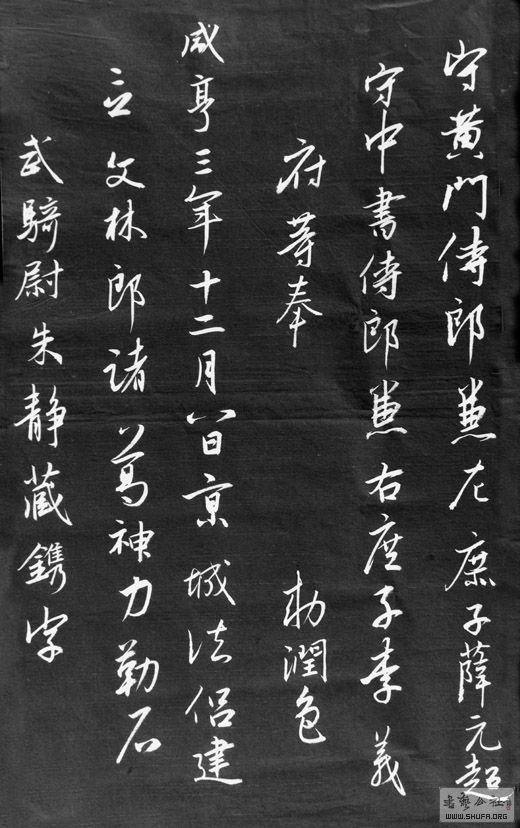 守黄門侍郎兼左庶子薛元超
守中書侍郎兼右庶子李義
府等奉 勅潤色
咸亨三年十二月八日京城法侶建
立 文林郎諸葛神力勒石
武騎尉朱静藏鐫字
書藝公社
WWW.SHUFA.ORG